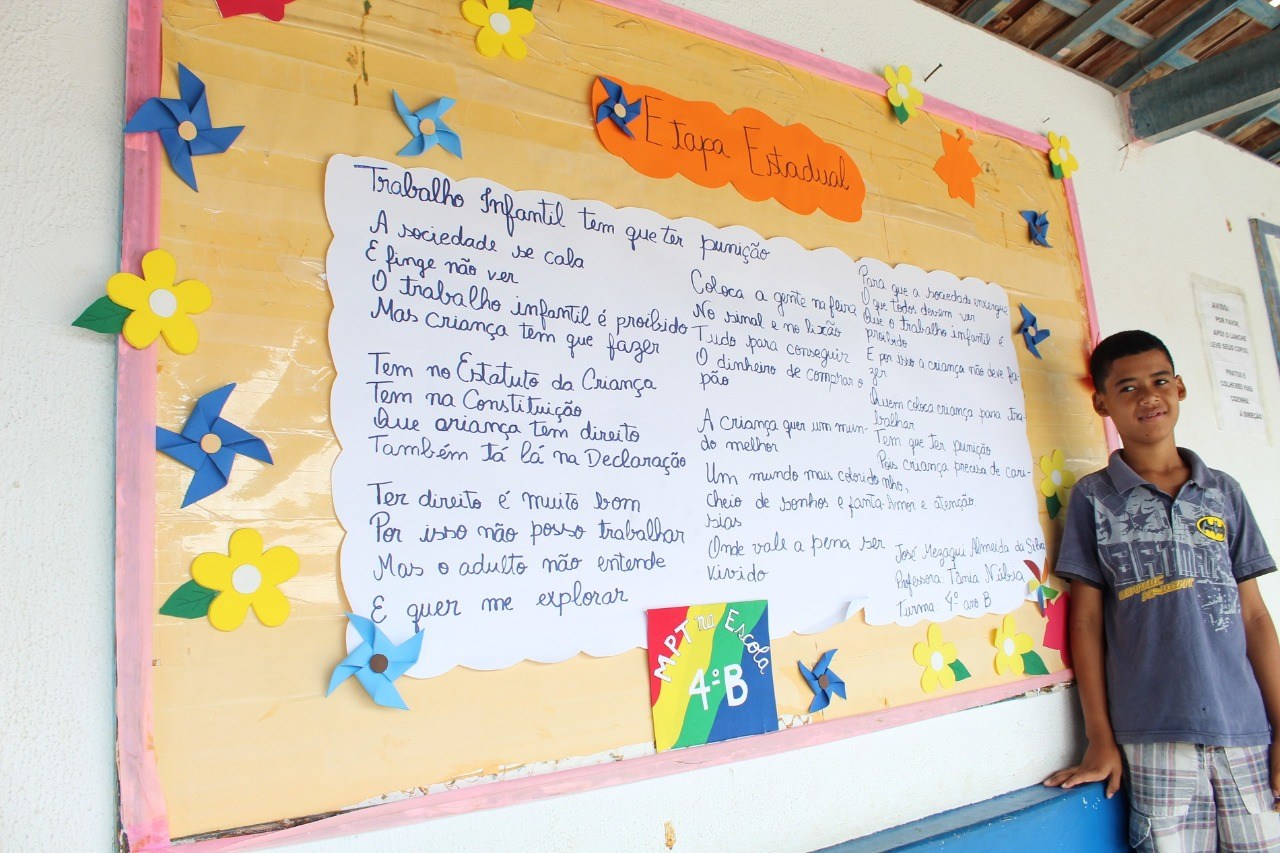 Etapa Estadual
Trabalho Infantil tem que ter punição
A sociedade se cala
E finge não ver
O trabalho infantil é proibido
Mas criança tem que fazer
Tem no Estatuto da Criança
Tem na Constituição
Que criança tem direito
Também tá lá na Declaração
Ter direito é muito bom
Por isso não posso trabalhar
Mas o adulto não entende
E quer me explorar
Coloca a gente na feira
No sinal e no lixão
Tudo para conseguir
O dinheiro de comprar o
pão
A criança quer um mun-
do melhor
Um mundo mais colorido
cheio de sonhos e fanta-
sias
Onde vale a pena ser
vivido
Para que a sociedade enxergue
O que todos devem ver
Que o trabalho infantil é
proibido
E por isso a criança não deve fa-
zer
Quem coloca criança para tra-
balhar
Tem que ter punição
Pois criança precisa de cari-
nho,
Amor e atenção.
José Mezaqui Almeida da Silva
Professora Tânia Núbia
Turma: 4º ano B
MPT na Escola
4º B
AVISO:
POR FAVOR,
APÓS O LANCHE
LEVE SEUS COPOS,
PRATOS E
COLHERES PARA
COZINHA.
A DIREÇÃO
BATMAN